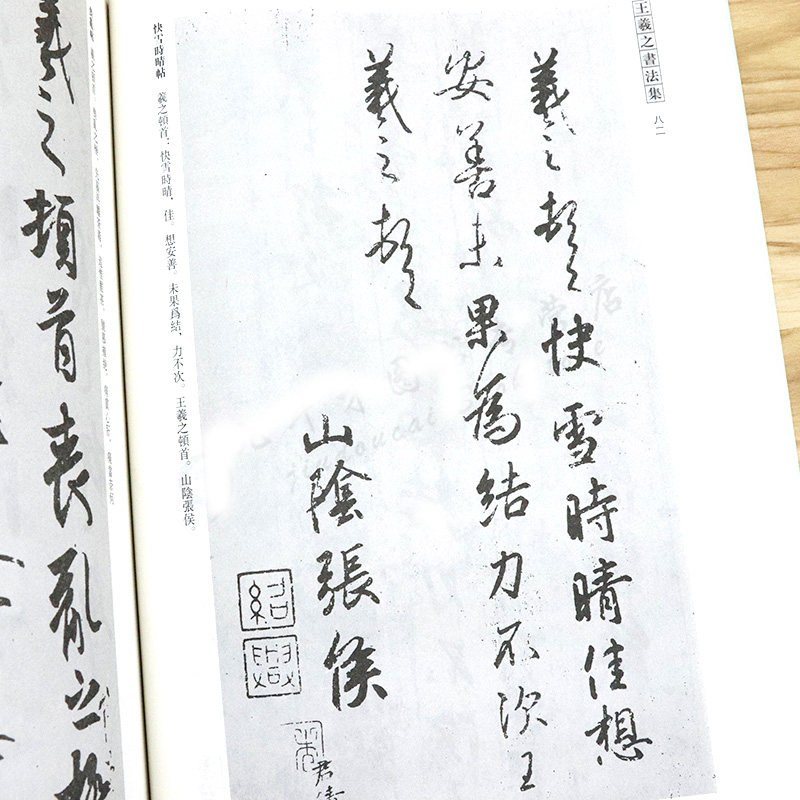 王羲之書法集 八二
羲之頓首快雪時晴佳想
安善未果為結力不次王
羲之頓首
山陰張侯
紹興
君倩
快雪時晴帖 羲之頓首：快雪時晴，佳。想安善。未果爲結，力不次。王羲之頓首。山陰張侯。
羲之頓首喪亂之極